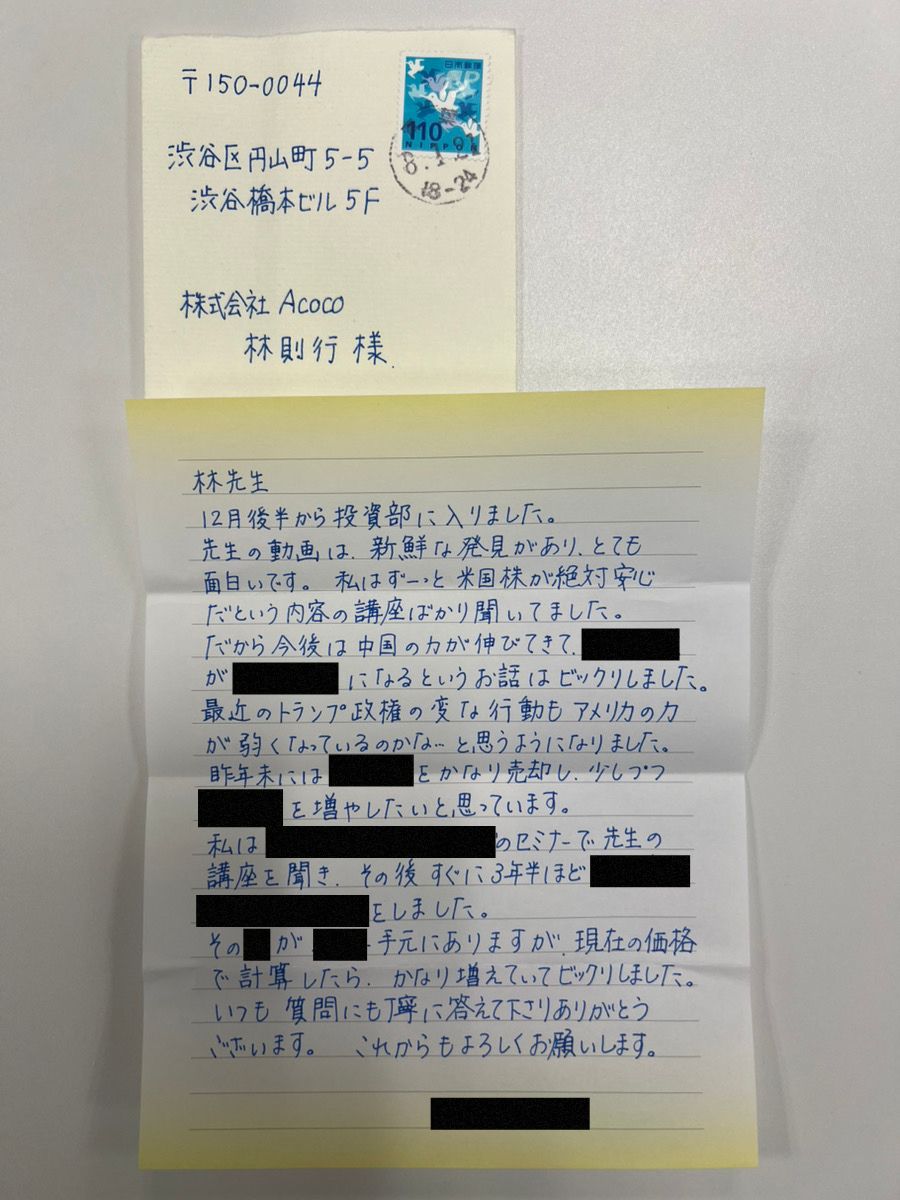 〒150-0044
日本郵便
110
NIPPON
8.1.
18-24
渋谷区円山町5-5
渋谷橋本ビル5F
株式会社 Acoco
林則行様
林先生
12月後半から投資部に入りました。
先生の動画は、新鮮な発見があり、とても
面白いです。 私はずーっと米国株が絶対安心
だという内容の講座ばかり聞いてました。
だから今後は中国の力が伸びてきて、
が になるというお話はビックリしました。
最近のトランプ政権の変な行動もアメリカの力
が弱くなっているのかな…と思うようになりました。
昨年末には をかなり売却し、少しづつ
を増やしたいと思っています。
私は のセミナーで先生の
講座を聞き、その後すぐに3年半ほど
をしました。
その が 手元にありますが、現在の価格
で計算したら、かなり増えていてビックリしました。
いつも質問にも丁寧に答えて下さりありがとう
ございます。 これからもよろしくお願いします。